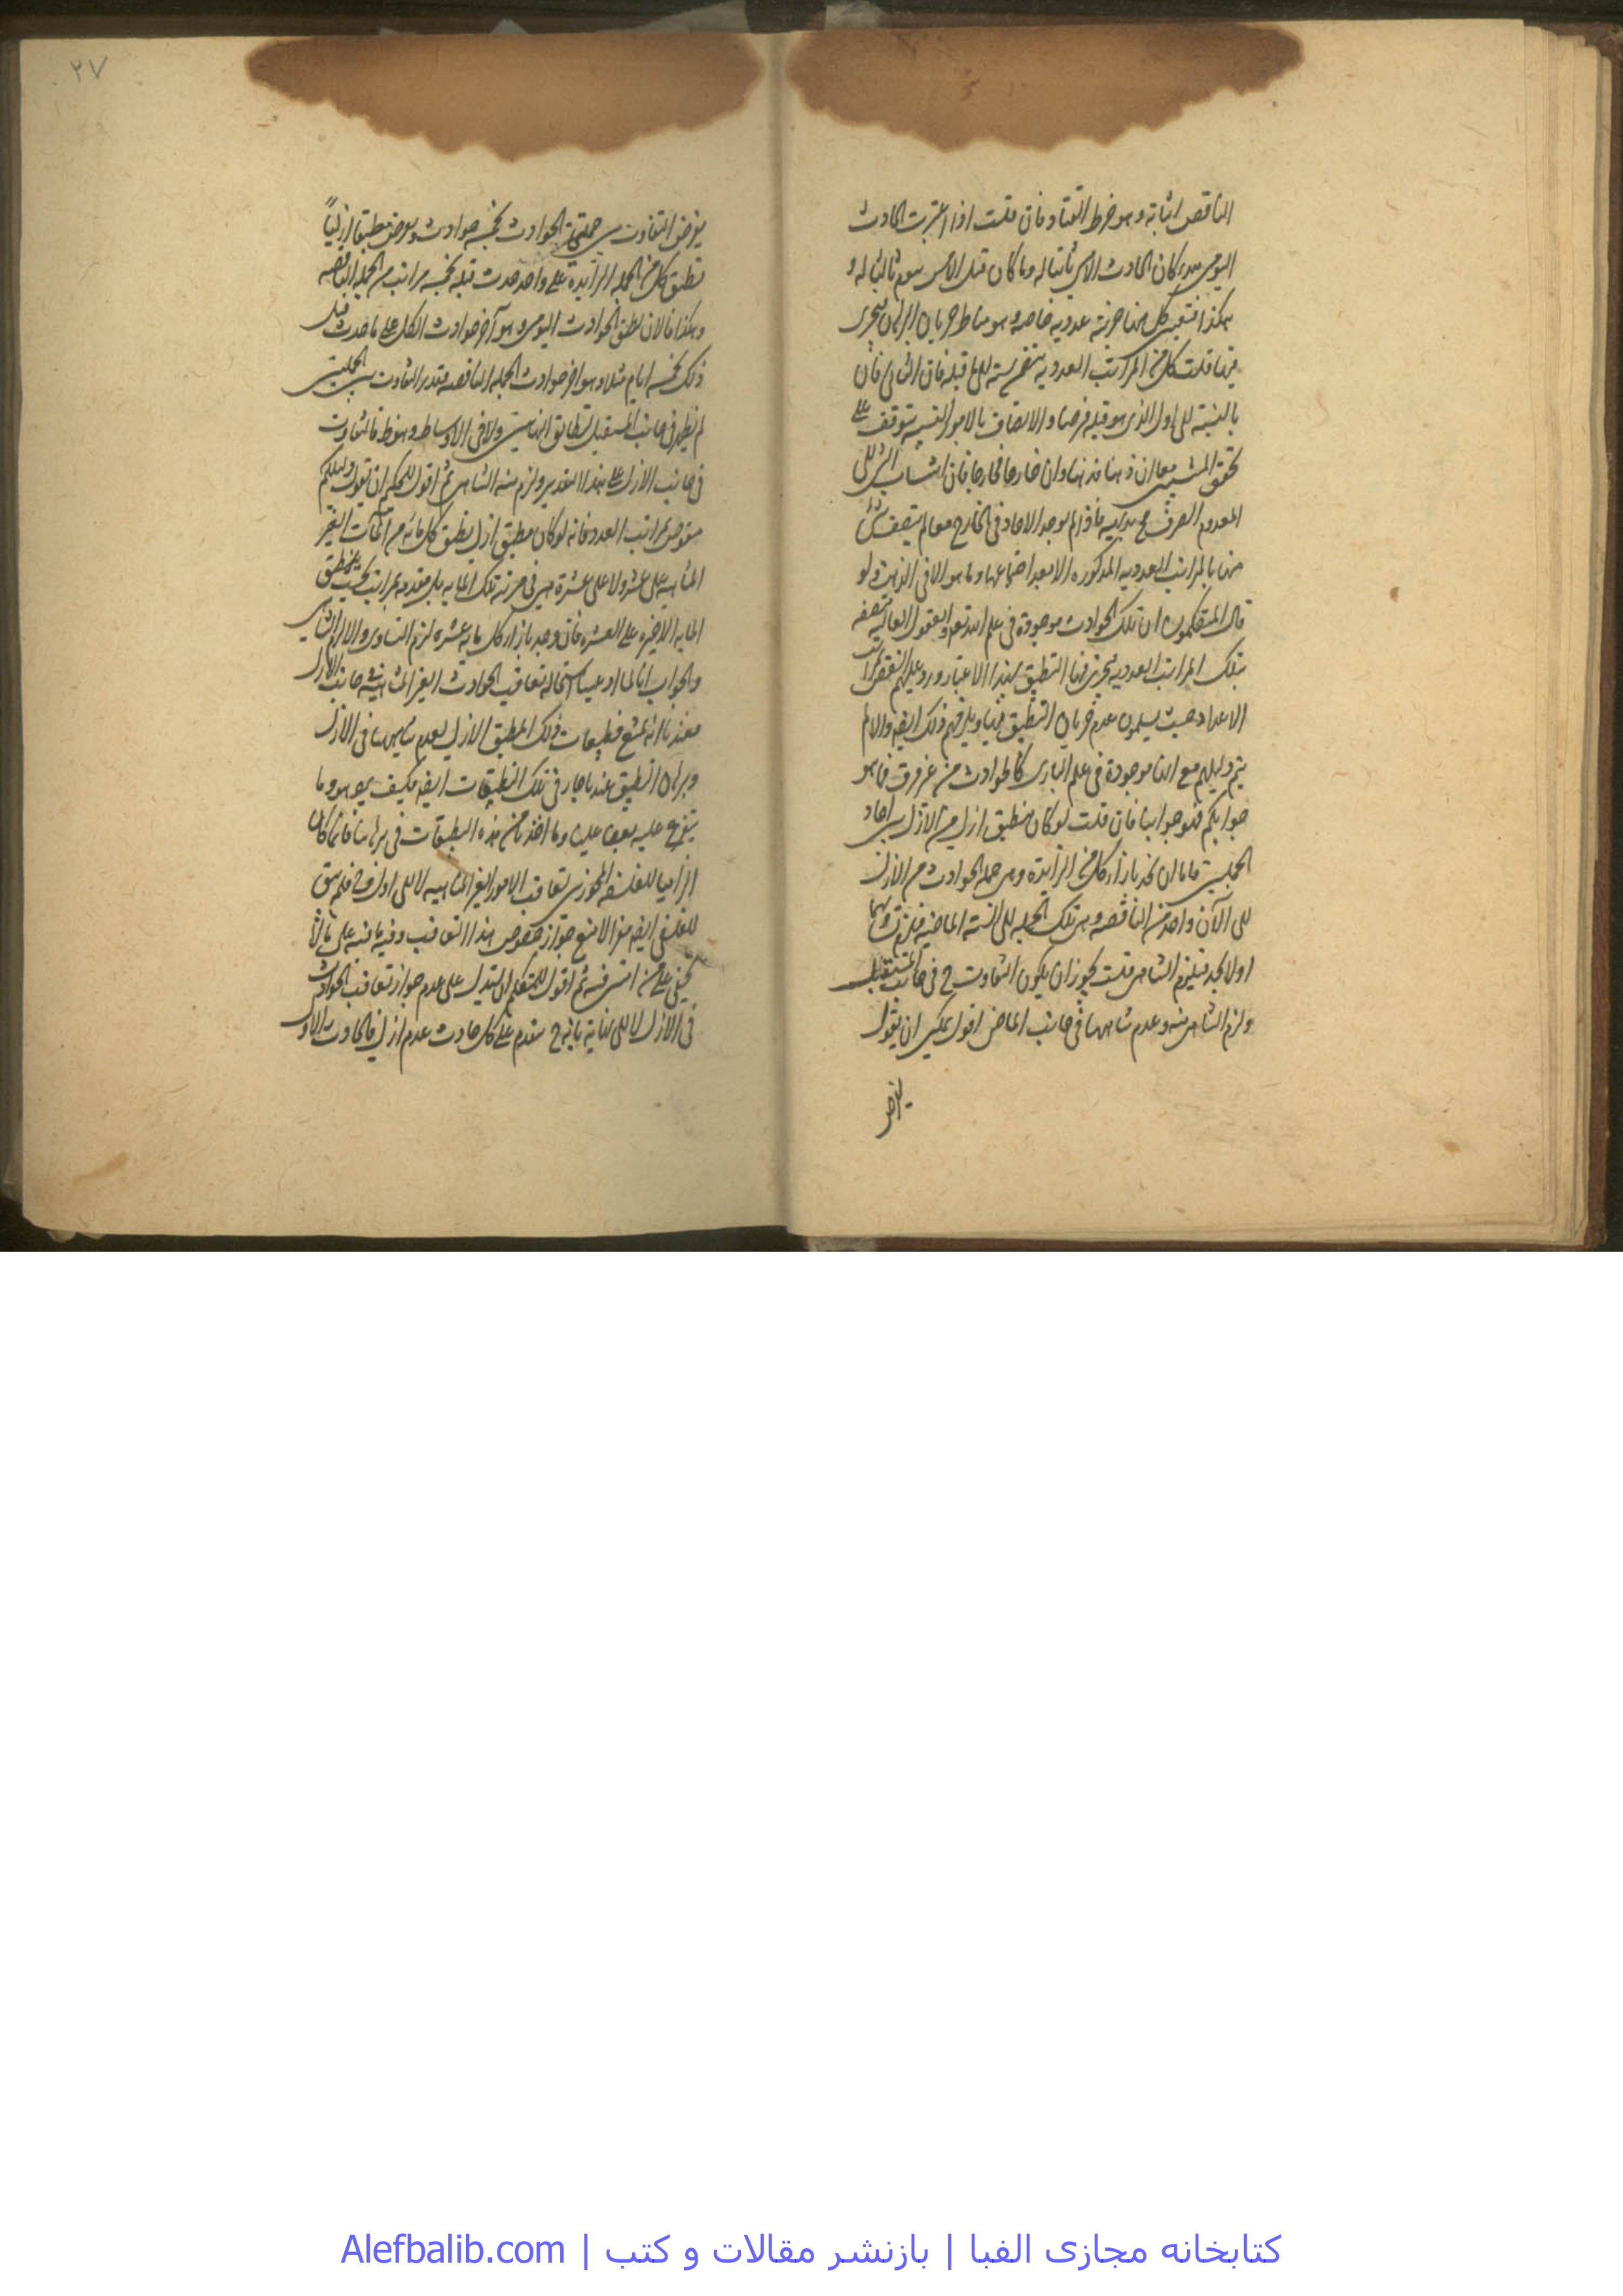 الناقص اثباته وهو خرط القتاد فان قلت اذا اعتبرت الحادث
اليومى مبدء كان الحادث الامسى ثانيا له وما كان قبل الامس بعد ثالثا له و
هكذا فتعين كل منها مرتبة عددية خاصة وهو مناط جريان البرهان فيجرى
فيها قلت كل من المراتب العددية نسبته الى ما قبله فان الثانى ثان
بالنسبة الى اول الذى هو قبله فرضا والاتصاف بالامور النسبية يتوقف على
تحقق المنتسبين معا ان ذهنا فذهنا وان خارجا فخارجا فان انتساب الشئ الى
المعدوم الصرف مح بديهة فاذا لم يوجد الاحاد فى الخارج معا لم يتصف شئ
منها بالمراتب العددية المذكورة الا بعد اجتماعها وما هو الا فى الذهن ولو
قال المتكلمون ان تلك الحوادث موجودة فى علم الله تعم والعقول العالية متصفة
بتلك المراتب العددية فيجرى فيها التطبيق بهذا الاعتبار ورد عليهم النقض بمراتب
الاعداد حيث يسلمون عدم جريان التطبيق فيها ويلزمهم ذلك ايضا والا لم
يتم دليلهم مع انها موجودة فى علم البارى كالحوادث من غير فرق فما هو
جوابكم فهو جوابنا فان قلت لو كان منطبق ازلى من الازل بين احاد
الجملتين فاما ان يجد بازاء كل من الزايدة وهى جملة الحوادث من الازل
الى الآن واحد من الناقصة وهى تلك الجملة الى السنة الماضية فلزم تساويهما
اولا يجد فيلزم التناهى قلت يجوز ان يكون التفاوت ح فى جانب المستقبل
ولزم التناهى منه وعدم تناهيها فى جانب الماضى اقول يمكن ان يقول
يفرض
٢٧
يفرض التفاوت بين جملتى الحوادث بخمسة حوادث ويفرض مطبقا ازليا
تطبق كل من الجملة الزايدة على واحد حدث قبله بخمسة مراتب من الجملة الناقصة
وهكذا فالان تطبق الحوادث اليومى وهو آخر حوادث الكل على ما حدث قبل
ذلك بخمسة ايام مثلا وهو اخر حوادث الجملة الناقصة فقدر التفاوت بين الجملتين
لم يظهر فى جانب المستقبل لتطابق النهايتين ولا فى الاوساط وهو ظ فالتفاوت
فى جانب الازل على هذا التقدير ولزم منه التناهى ثم اقول للحكيم ان يقول دليلكم
منقوض بمراتب العدد فانه لو كان مطبق ازلى يطبق كل مائة من المآت الغير
المتناهية على عشر ولا على عشرة هى فى مرتبة تلك المائة بل مقدمة بمراتب بحيث ينطبق
المائة الاخيرة على العشرة فان وجد بازاء كل مائة عشرة لزم التساوى والا لزم التناهى
والجواب انا لما ادعينا استحالة تعاقب الحوادث الغير المتناهية فى جانب الازل
فعندنا انه يمتنع تطبيقات ذلك المطبق الازلى لعدم تناهيها فى الازل
وبرهان التطبيق عندنا جار فى تلك التطبيقات ايضا فكيف يجوز هو وما
يتفرع عليه نقضا علينا وما اخذنا من هذه التطبيقات فى برهاننا فانما كان
الزاميا للفلسفة المجوزين لتعاقب الامور الغير المتناهية لا الى اول فح فلم يبق
للفلسفى ايضا مفر الا منع جواز خصوص هذا التعاقب وفيه ما فيه على ما لا
يخفى على من انتبس فيه ثم اقول للمتكلم ان يستدل على عدم جواز تعاقب الحوادث
فى الازل لا الى نهاية بانه ح يتقدم على كل حادث عدم ازلى فالحادث الاول
کتابخانه مجازی الفبا | بازنشر مقالات و کتب | Alefbalib.com